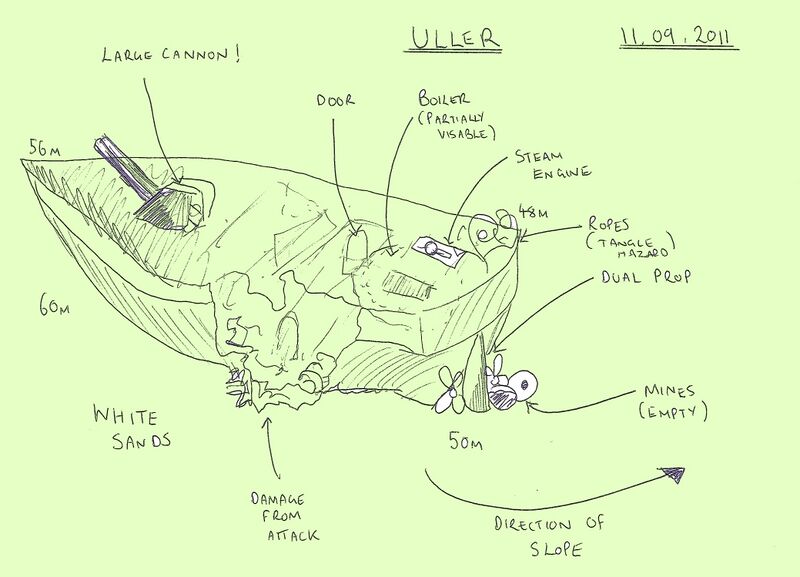 ULLER
11.09.2011
LARGE CANNON!
DOOR
BOILER
(PARTIALLY
VISABLE)
STEAM
ENGINE
56M
48M
ROPES
(TANGLE
HAZARD)
DUAL PROP
60M
MINES
(EMPTY)
WHITE
SANDS
50M
DAMAGE
FROM
ATTACK
DIRECTION OF
SLOPE